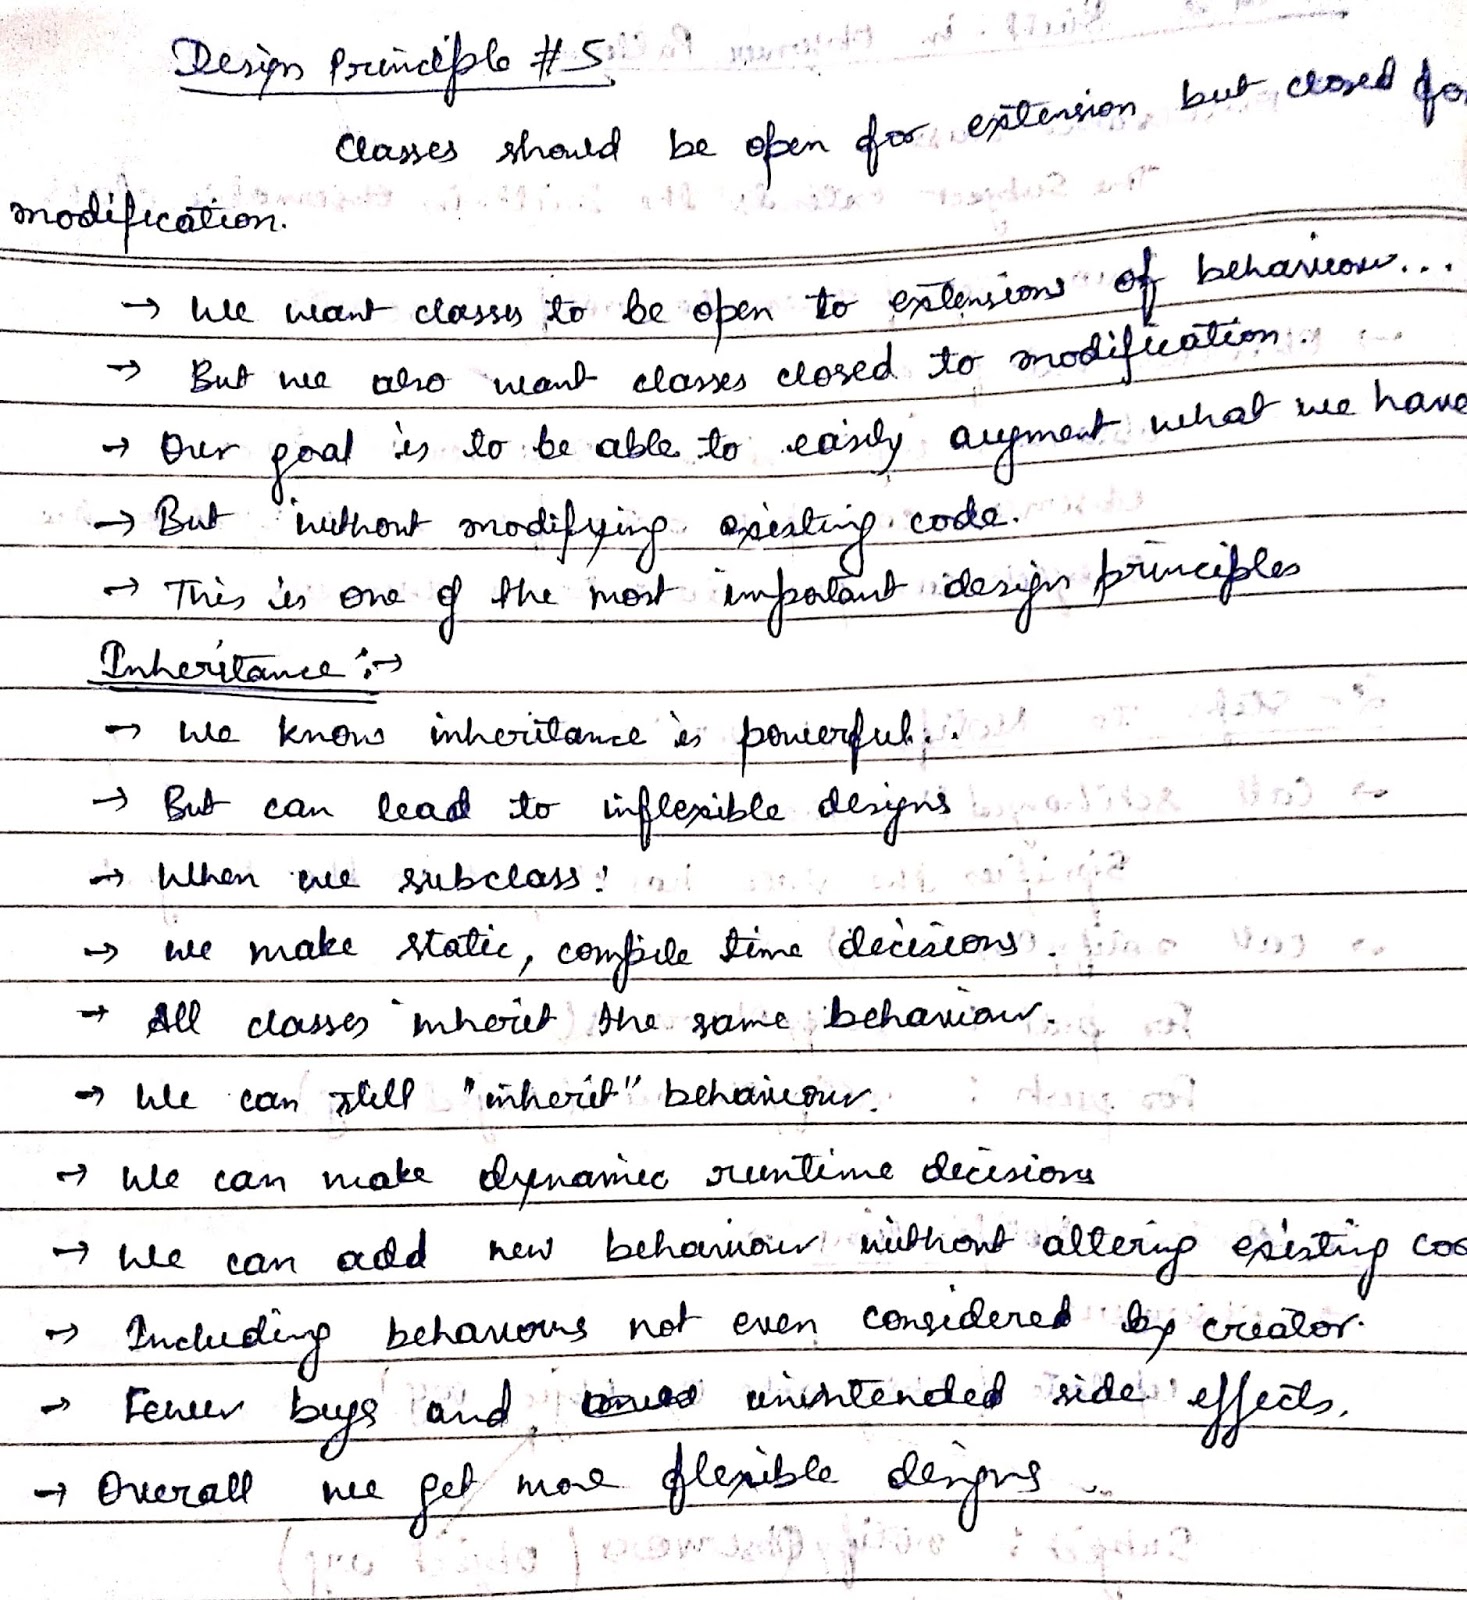 Design Principle #5
Classes should be open for extension but closed for
modification.
→ We want classes to be open to extensions of behaviour...
→ But we also want classes closed to modification.
→ Our goal is to be able to easily augment what we have
→ But without modifying existing code.
→ This is one of the most important design principles
Inheritance :→
→ We know inheritance is powerful..
→ But can lead to inflexible designs
→ When we subclass:
→ We make static, compile time decisions.
→ All classes inherit the same behaviour.
→ We can still "inherit" behaviour.
→ We can make dynamic runtime decisions
→ We can add new behaviour without altering existing co
→ Including behaviours not even considered by creator.
→ Fewer bugs and unintended side effects.
→ Overall we get more flexible designs.
Subject : notifyObservers (Object arg)